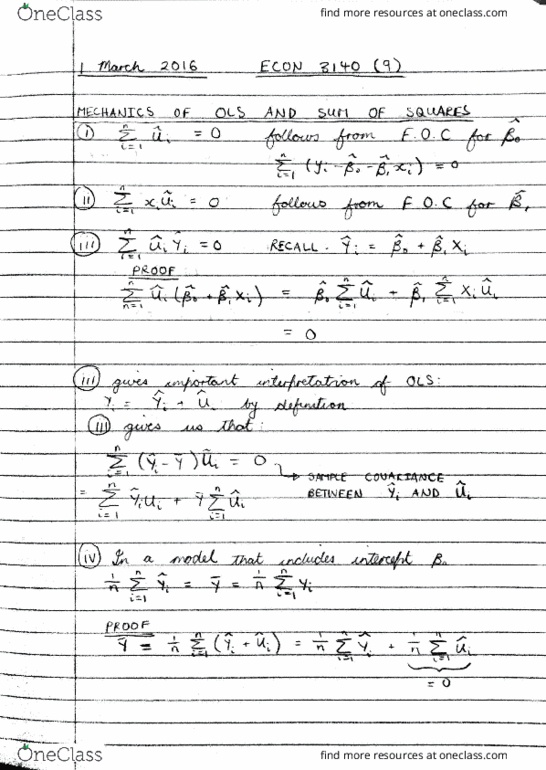 OneClass find more resources at oneclass.com
1 March 2016 ECON 3140 (9)
MECHANICS OF OLS AND SUM OF SQUARES
(i) ∑_{i=1}^{n} û_i = 0 follows from F.O.C for β̂₀
∑_{i=1}^{n} (y_i - β̂₀ - β̂₁x_i) = 0
(ii) ∑_{i=1}^{n} x_i û_i = 0 follows from F O.C for β̂₁
(iii) ∑_{i=1}^{n} û_i Ŷ_i = 0 RECALL. Ŷ_i = β̂₀ + β̂₁ X_i
PROOF
∑_{n=1}^{n} û_i (β̂₀ + β̂₁ X_i) = β̂₀ ∑_{i=1}^{n} û_i + β̂₁ ∑_{i=1}^{n} X_i û_i
= 0
(iii) gives important interpretation of OLS:
Y_i = Ŷ_i + û_i by definition
(iii) gives us that:
∑_{i=1}^{n} (Ŷ_i - Ȳ) û_i = 0
→ SAMPLE COVARIANCE
BETWEEN Ŷ_i AND û_i
= ∑_{i=1}^{n} Ŷ_i u_i + Ȳ ∑_{i=1}^{n} û_i
(iv) In a model that includes intercept β₀
1/n ∑_{i=1}^{n} Ŷ_i = Ȳ = 1/n ∑_{i=1}^{n} Y_i
PROOF
Ȳ = 1/n ∑_{i=1}^{n} (Ŷ_i + û_i) = 1/n ∑_{i=1}^{n} Ŷ_i + 1/n ∑_{i=1}^{n} û_i
= 0
OneClass find more resources at oneclass.com